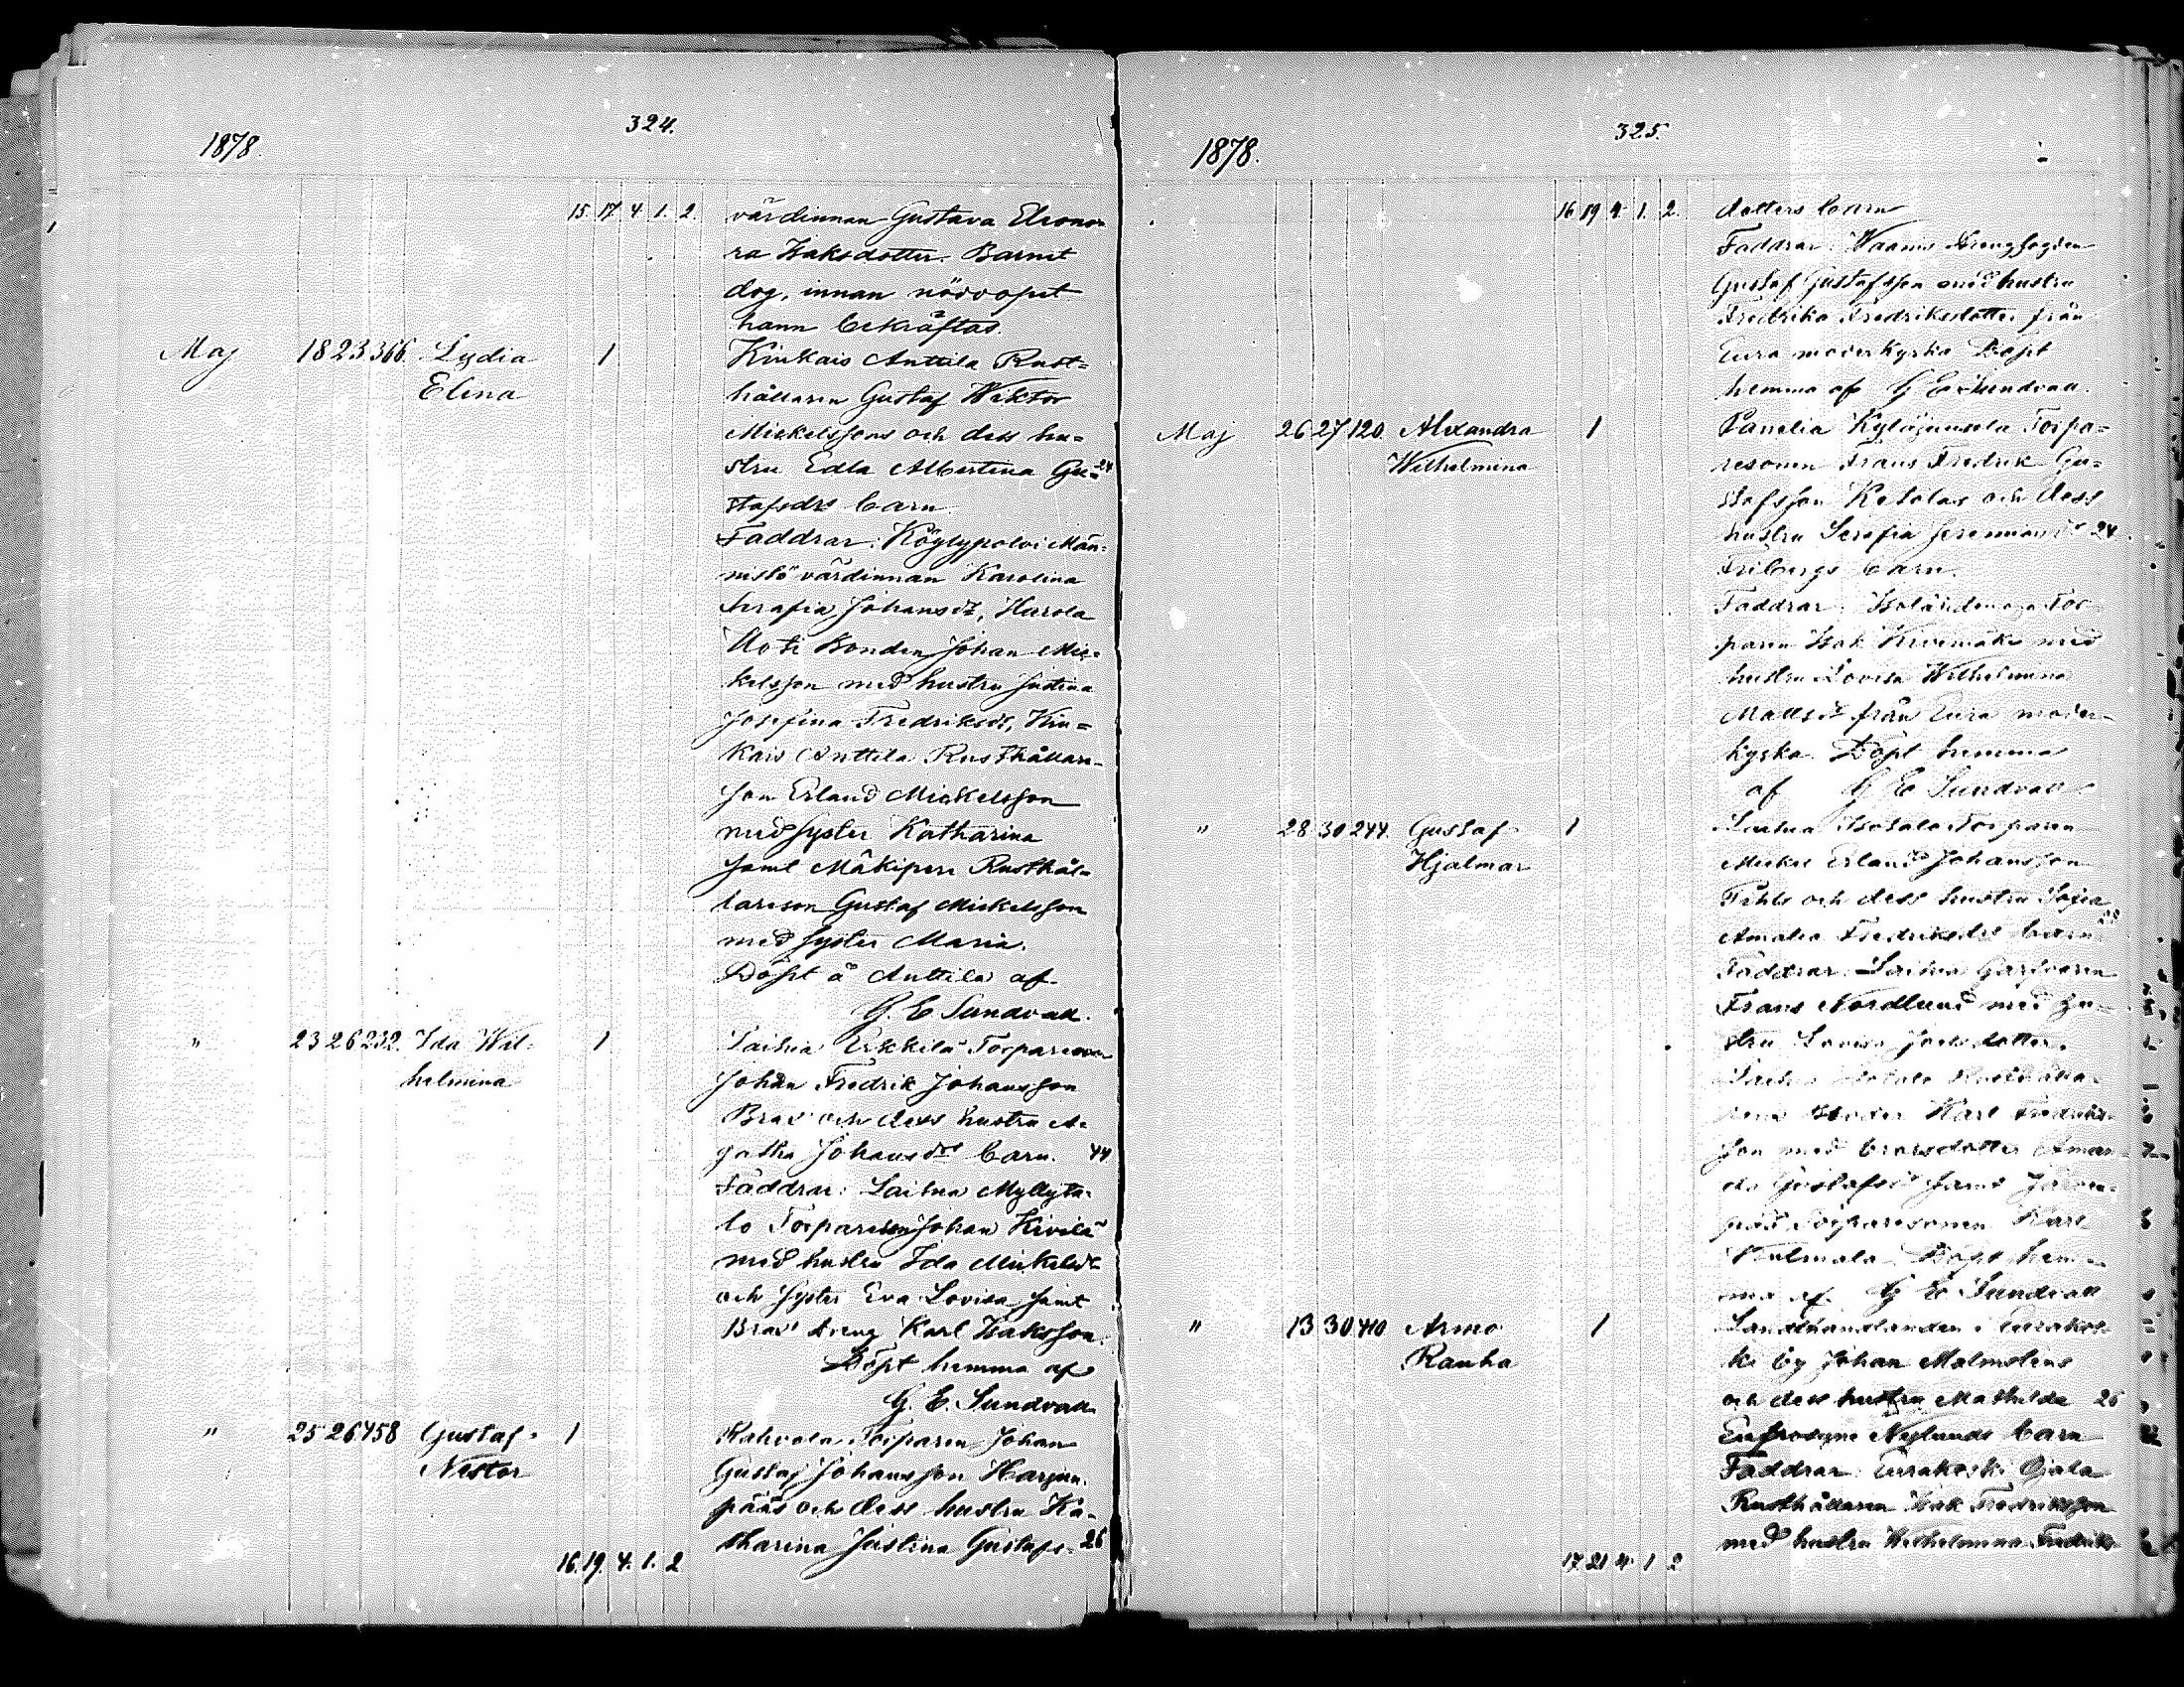 324.
1878.
15. 17. 4. 1. 2. värdinnan Gustava Eleono-
ra Isaksdotter. Barnet
dog, innan nöddopet
hann bekräftas.
Maj 18 23 366. Lydia 1 Kiukais Anttila Rust=
Elina hållaren Gustaf Wiktor
Mickelssons och dess hu=
stru Edla Albertina Gu= 24
stafsdrs barn.
Faddrar: Köylypolvi Män=
nistö värdinnan Karolina
Serafia Johansdr, Harola
Uoti Bonden Johan Mic=
kelsson med hustru Justina
Josefina Fredriksdr, Kiu=
kais Anttila Rusthållare-
son Erland Mickelsson
med syster Katharina
samt Mäkiperi Rusthål-
lareson Gustaf Mickelsson
med syster Maria.
Döpt å Anttila af
G. E Sundvall.
" 23 26 232. Ida Wil- 1 Laihia Erkkilä Torparen
helmina Johan Fredrik Johansson
Brad och dess hustru A-
gatha Johansdrs barn. 44
Faddrar: Laihia Myllyta-
lo Torparesonen Johan Kivilä
med hustru Ida Mickelsdr
och syster Eva Lovisa samt
Brad dreng Karl Isaksson.
Döpt hemma af
G. E. Sundvall
" 25 26 458 Gustaf 1 Kahvola Torparen Johan
Nestor Gustaf Johansson Harjun-
pääs och dess hustru Ka-
tharina Justina Gustafs- 26
16. 19. 4. 1. 2
325.
1878.
16 19 4. 1. 2. dotters barn
Faddrar: Drengfogden
Gustaf Gustafsson med hustru
Fredrika Fredriksdotter från
Eura moderkyrka Döpt
hemma af G E Sundvall.
Maj 26 27 120. Alexandra 1 Panelia Kyläjunsola Torpa=
Wilhelmina resonen Frans Fredrik Gu=
stafsson Ketolas och dess
hustru Serafia 24
Fribergs barn.
Faddrar: Tor-
paren Isak med
hustru Lovisa Wilhelmina
Mattsdr från Eura moder-
kyrka. Döpt hemma
af G E Sundvall
" 28 30 244. Gustaf 1 Laihia Isotalo Torparen
Hjalmar Mickel Erland Johansson
och dess hustru Sofia
Amalia Fredriksdrs barn
Faddrar: Laihia Garfvaren
Frans Nordlund med hu-
stru Lovisa Joelsdotter.
Laihia Isotalo Rusthålla-
rens broder Karl Fredriks-
son med brorsdotter Aman-
da Gustafsdr samt
Torparesonen Karl
Kulmala. Döpt hem-
ma af G E Sundvall
" 13 30 410 Armo 1 Landthandlanden i Eurakos-
Rauha ki by Johan Malmstens
och dess hustru Mathilda 26
Eufrosyne Nylunds barn
Faddrar: Eurakoski Ojala
Rusthållaren Isak Fredriksson
med hustru Wilhelmina Fredriks
17. 21 4. 1 2